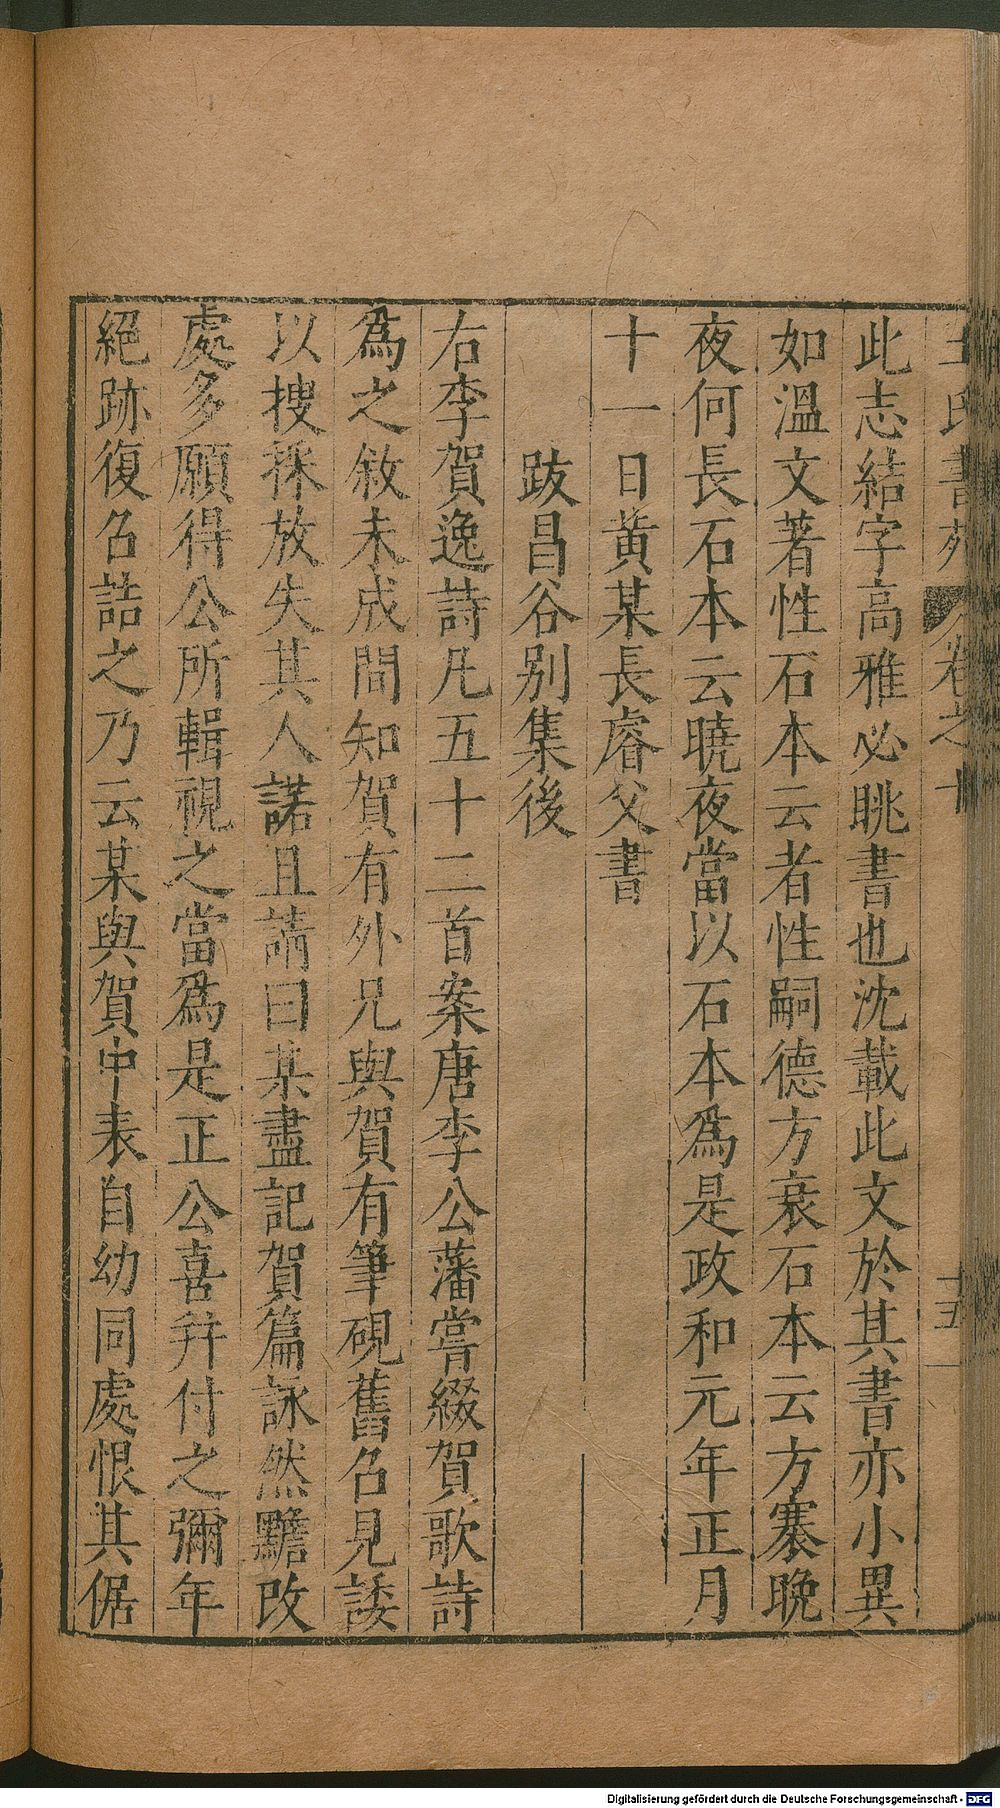 王氏書苑 卷之十
十五
此志結字高雅必眺書也沈載此文於其書亦小異
如溫文著性石本云者性嗣德方衰石本云方褰晩
夜何長石本云曉夜當以石本爲是政和元年正月
十一日黄某長睿父書
跋昌谷别集後
右李賀逸詩凡五十二首案唐李公藩嘗綴賀歌詩
爲之敘未成間知賀有外兄與賀有筆硯舊名見諉
以搜採放失其人諾且請曰某盡記賀篇詠然黵改
處多願得公所輯視之當爲是正公喜幷付之彌年
絕跡復名詰之乃云某與賀中表自幼同處恨其倨
Digitalisierung gefördert durch die Deutsche Forschungsgemeinschaft - DFG